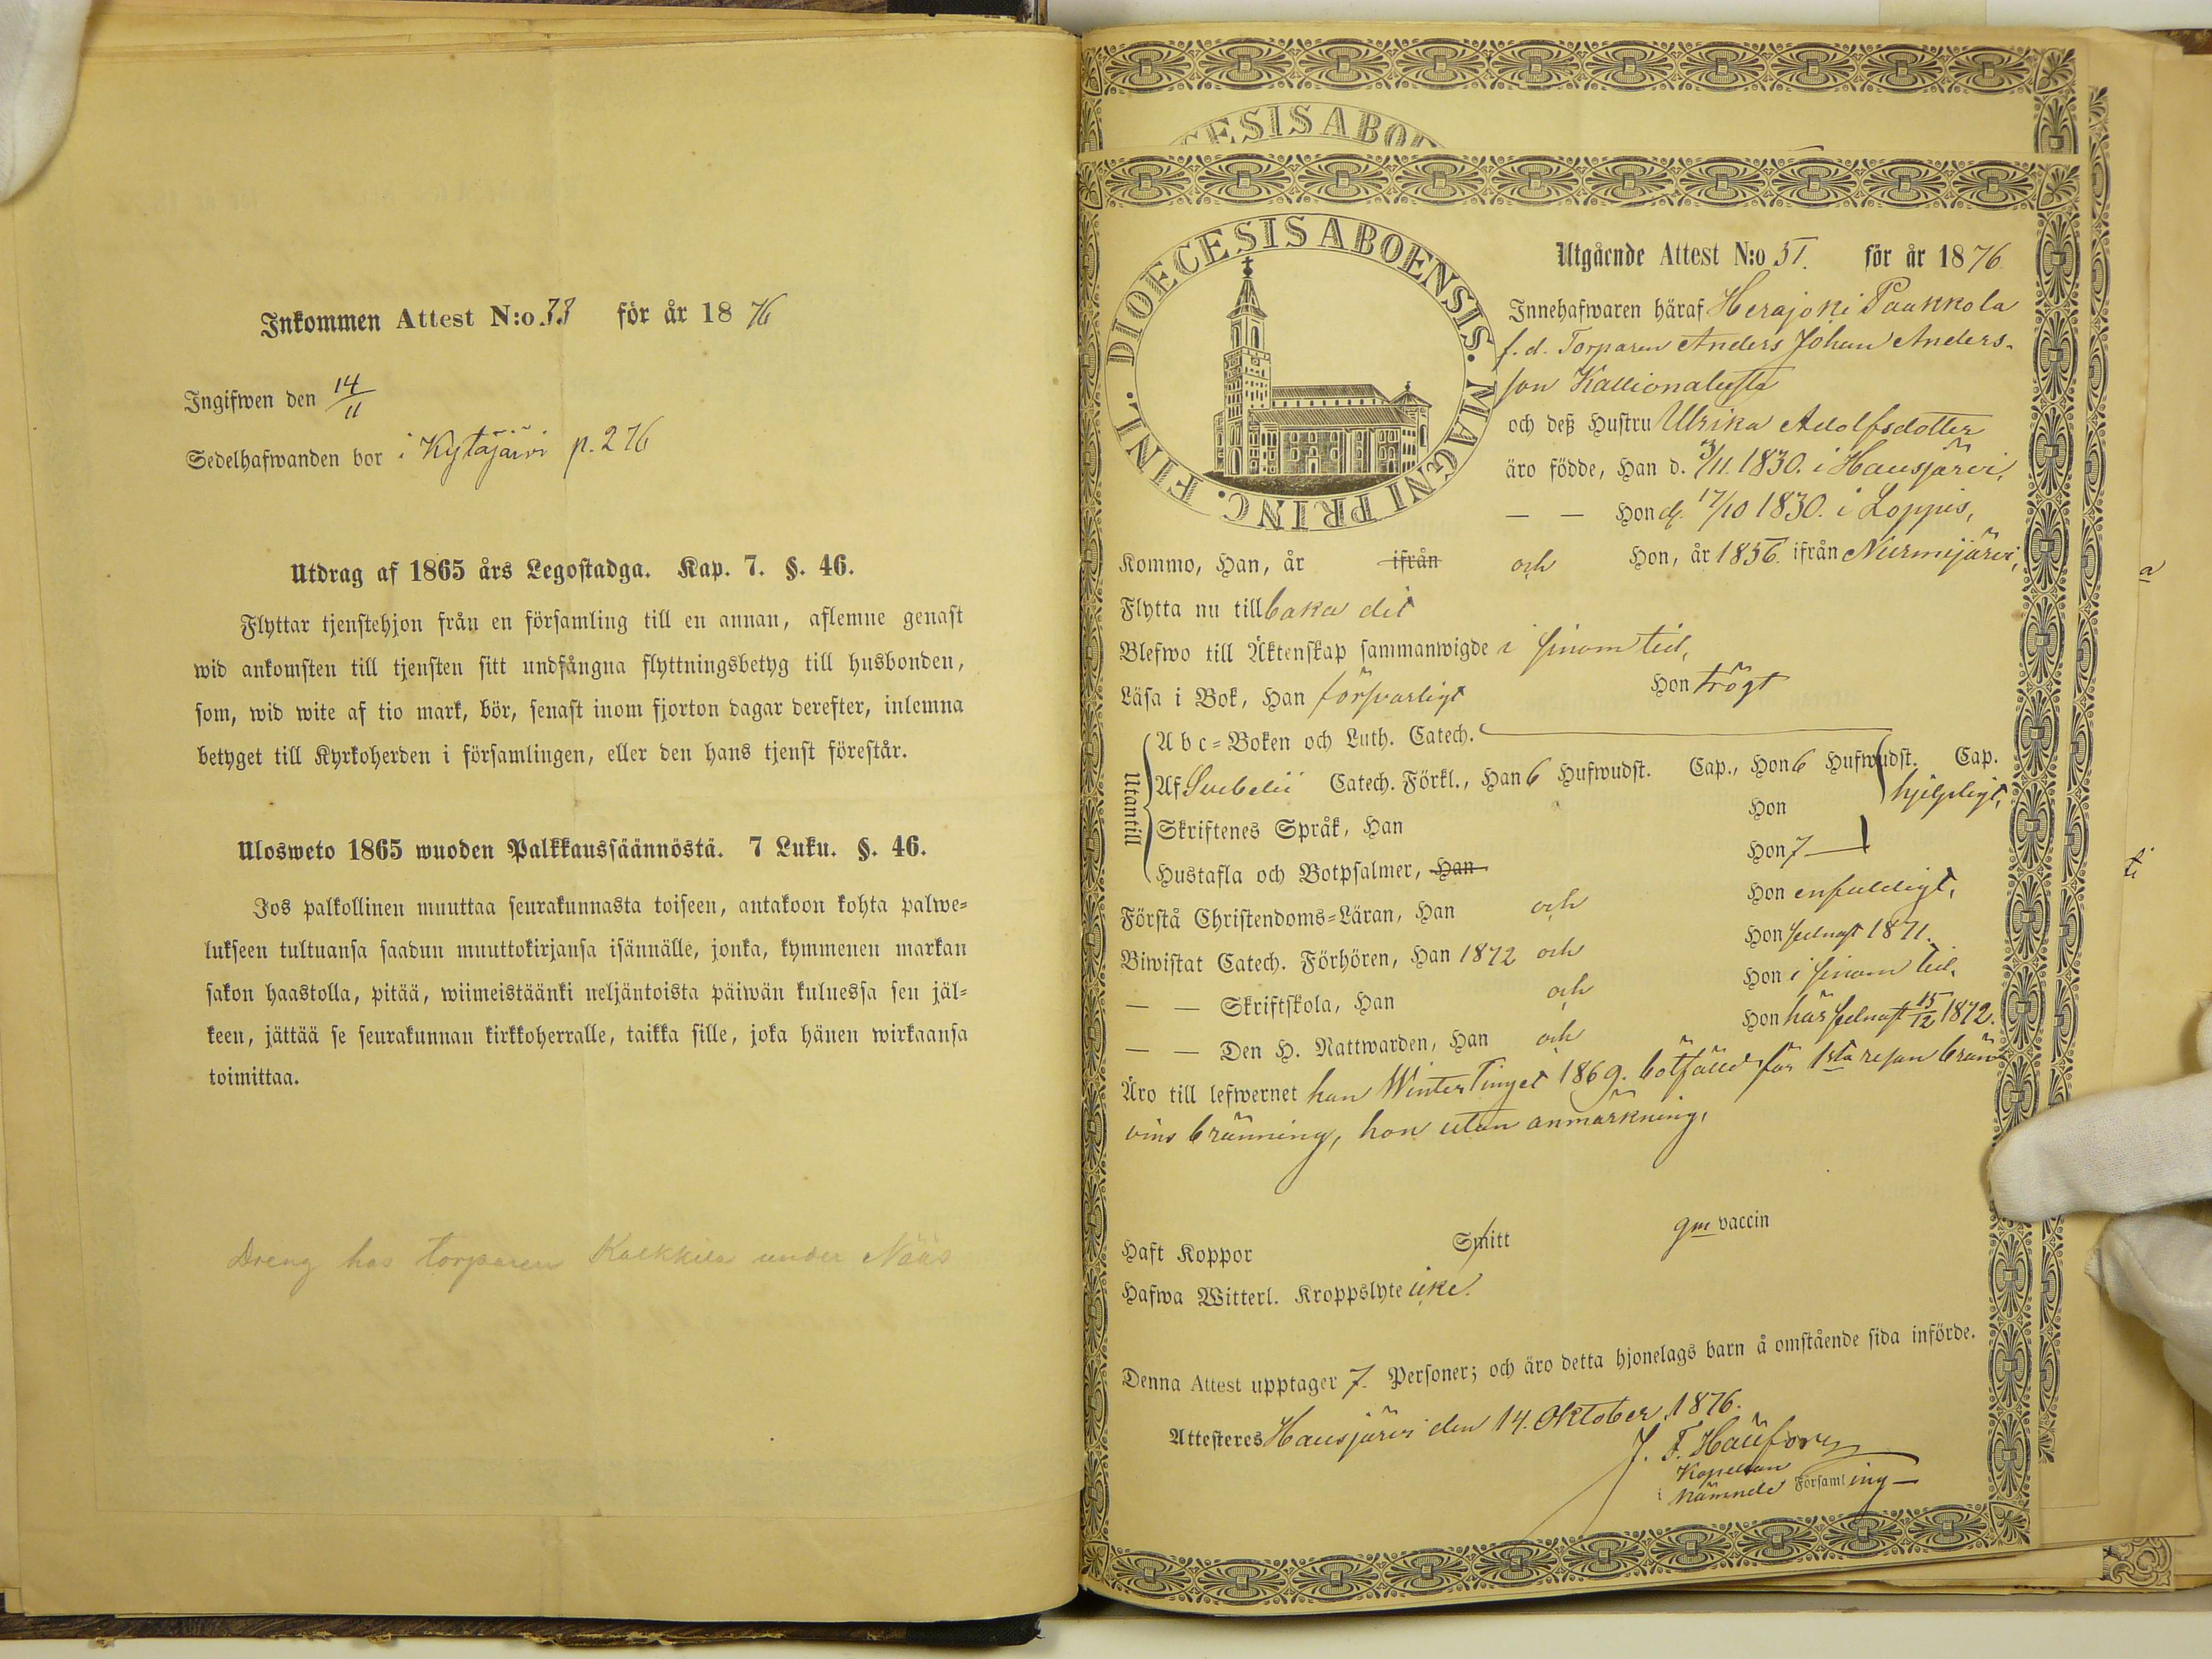 Inkommen Attest N:o 33 för år 1876
Ingifwen den 14/11
Sedelhafwanden bor i Kytäjärvi p. 276
Utdrag af 1865 års Legostadga. Kap. 7. §. 46.
Flyttar tjenstehjon från en församling till en annan, aflemne genast
wid ankomsten till tjensten sitt undfångna flyttningsbetyg till husbonden,
som, wid wite af tio mark, bör, senast inom fjorton dagar derefter, inlemna
betyget till Kyrkoherden i församlingen, eller den hans tjenst förestår.
Ulosweto 1865 wuoden Palkkaussäännöstä. 7 Luku. §. 46.
Jos palkollinen muuttaa seurakunnasta toiseen, antakoon kohta palwe-
lukseen tultuansa saadun muuttokirjansa isännälle, jonka, kymmenen markan
sakon haastolla, pitää, wiimeistäänki neljäntoista päiwän kuluessa sen jäl-
keen, jättää se seurakunnan kirkkoherralle, taikka sille, joka hänen wirkaansa
toimittaa.
Dreng hos torparen Kalkkila under Nääs
ESIS ABO
DIOECESIS ABOENSIS. MAGNI PRINC. FINL.
Utgående Attest N:o 51. för år 1876
Innehafwaren häraf Herajoki Paakkola
f. d. Torparen Anders Johan Anders-
son
och deß Hustru Ulrika Adolfsdotter
äro födde, Han d. 3/11. 1830. i Hausjärvi,
— — Hon d. 17/10 1830. i Loppis,
Kommo, Han, år ifrån och Hon, år 1856. ifrån Nurmijärvi,
Flytta nu tillbaka dit
Blefwo till Äktenskap sammanwigde i sinom tid,
Läsa i Bok, Han försvarligt Hon trögt
Utantill
A b c-Boken och Luth. Catech.
Af Svebelii Catech. Förkl., Han 6 Hufwudst. Cap., Hon 6 Hufwudst. Cap.
hjelpligt,
Skriftenes Språk, Han Hon
Hustafla och Botpsalmer, Han Hon 7
Förstå Christendoms-Läran, Han och Hon enfaldigt,
Biwistat Catech. Förhören, Han 1872 och Hon sednast 1871.
— — Skriftskola, Han och Hon i sinom tid,
— — Den H. Nattwarden, Han och Hon här sednast 15/12 1872.
Äro till lefwernet han Winter Tinget 1869. bötfälld för 1sta resan brän
vins bränning, hon utan anmärkning,
Haft Koppor Smitt gm vaccin
Hafwa Witterl. Kroppslyte icke.
Denna Attest upptager 7. Personer; och äro detta hjonelags barn å omstående sida införde.
Attesteres Hausjärvi den 14. Oktober 1876.
J. F.
Kapellan
i nämnde Församling